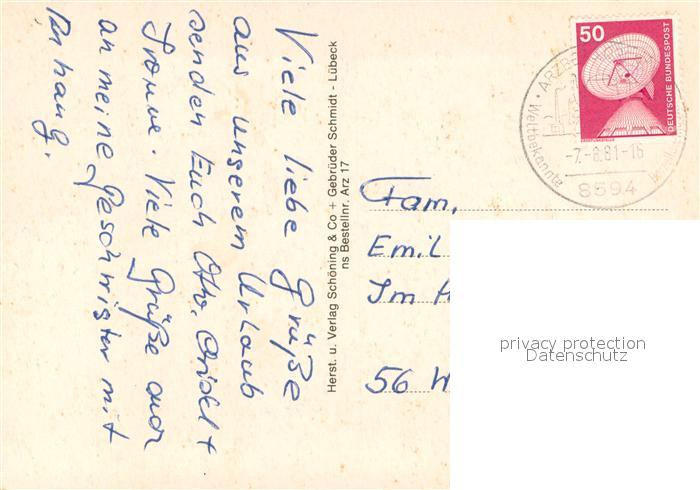 Viele liebe Grüße
aus unserem Urlaub
senden Euch Otto, Christl +
Viele Grüße auch
an meine Geschwister mit
Anhang.
Herst. u. Verlag Schöning & Co + Gebrüder Schmidt - Lübeck
ns Bestellnr. Arz 17
50
DEUTSCHE BUNDESPOST
ARZBE
Weltbekannte
-7.-8.81-16
8594
Fam.
Emil
Im
56 W
privacy protection
Datenschutz